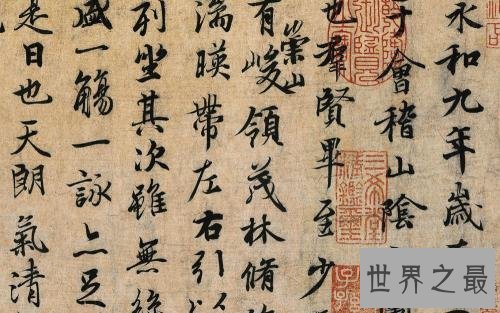 永和九年歲
于會稽山陰
也羣賢畢至少
有崇山峻領茂林脩
湍暎帶左右引以
列坐其次雖無絲
盛一觴一詠亦足
是日也天朗氣清
世界之最